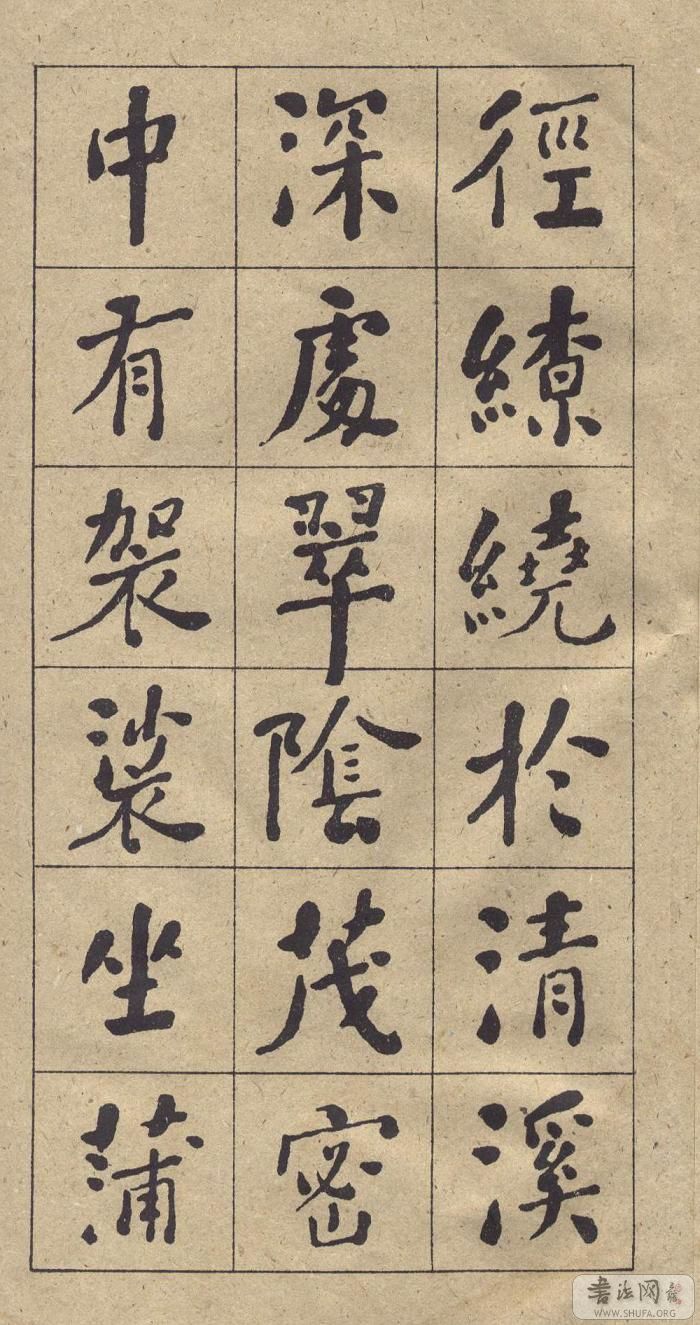 徑繚繞於清溪
深處翠陰茂密
中有袈裟坐蒲
书法网
WWW.SHUFA.ORG